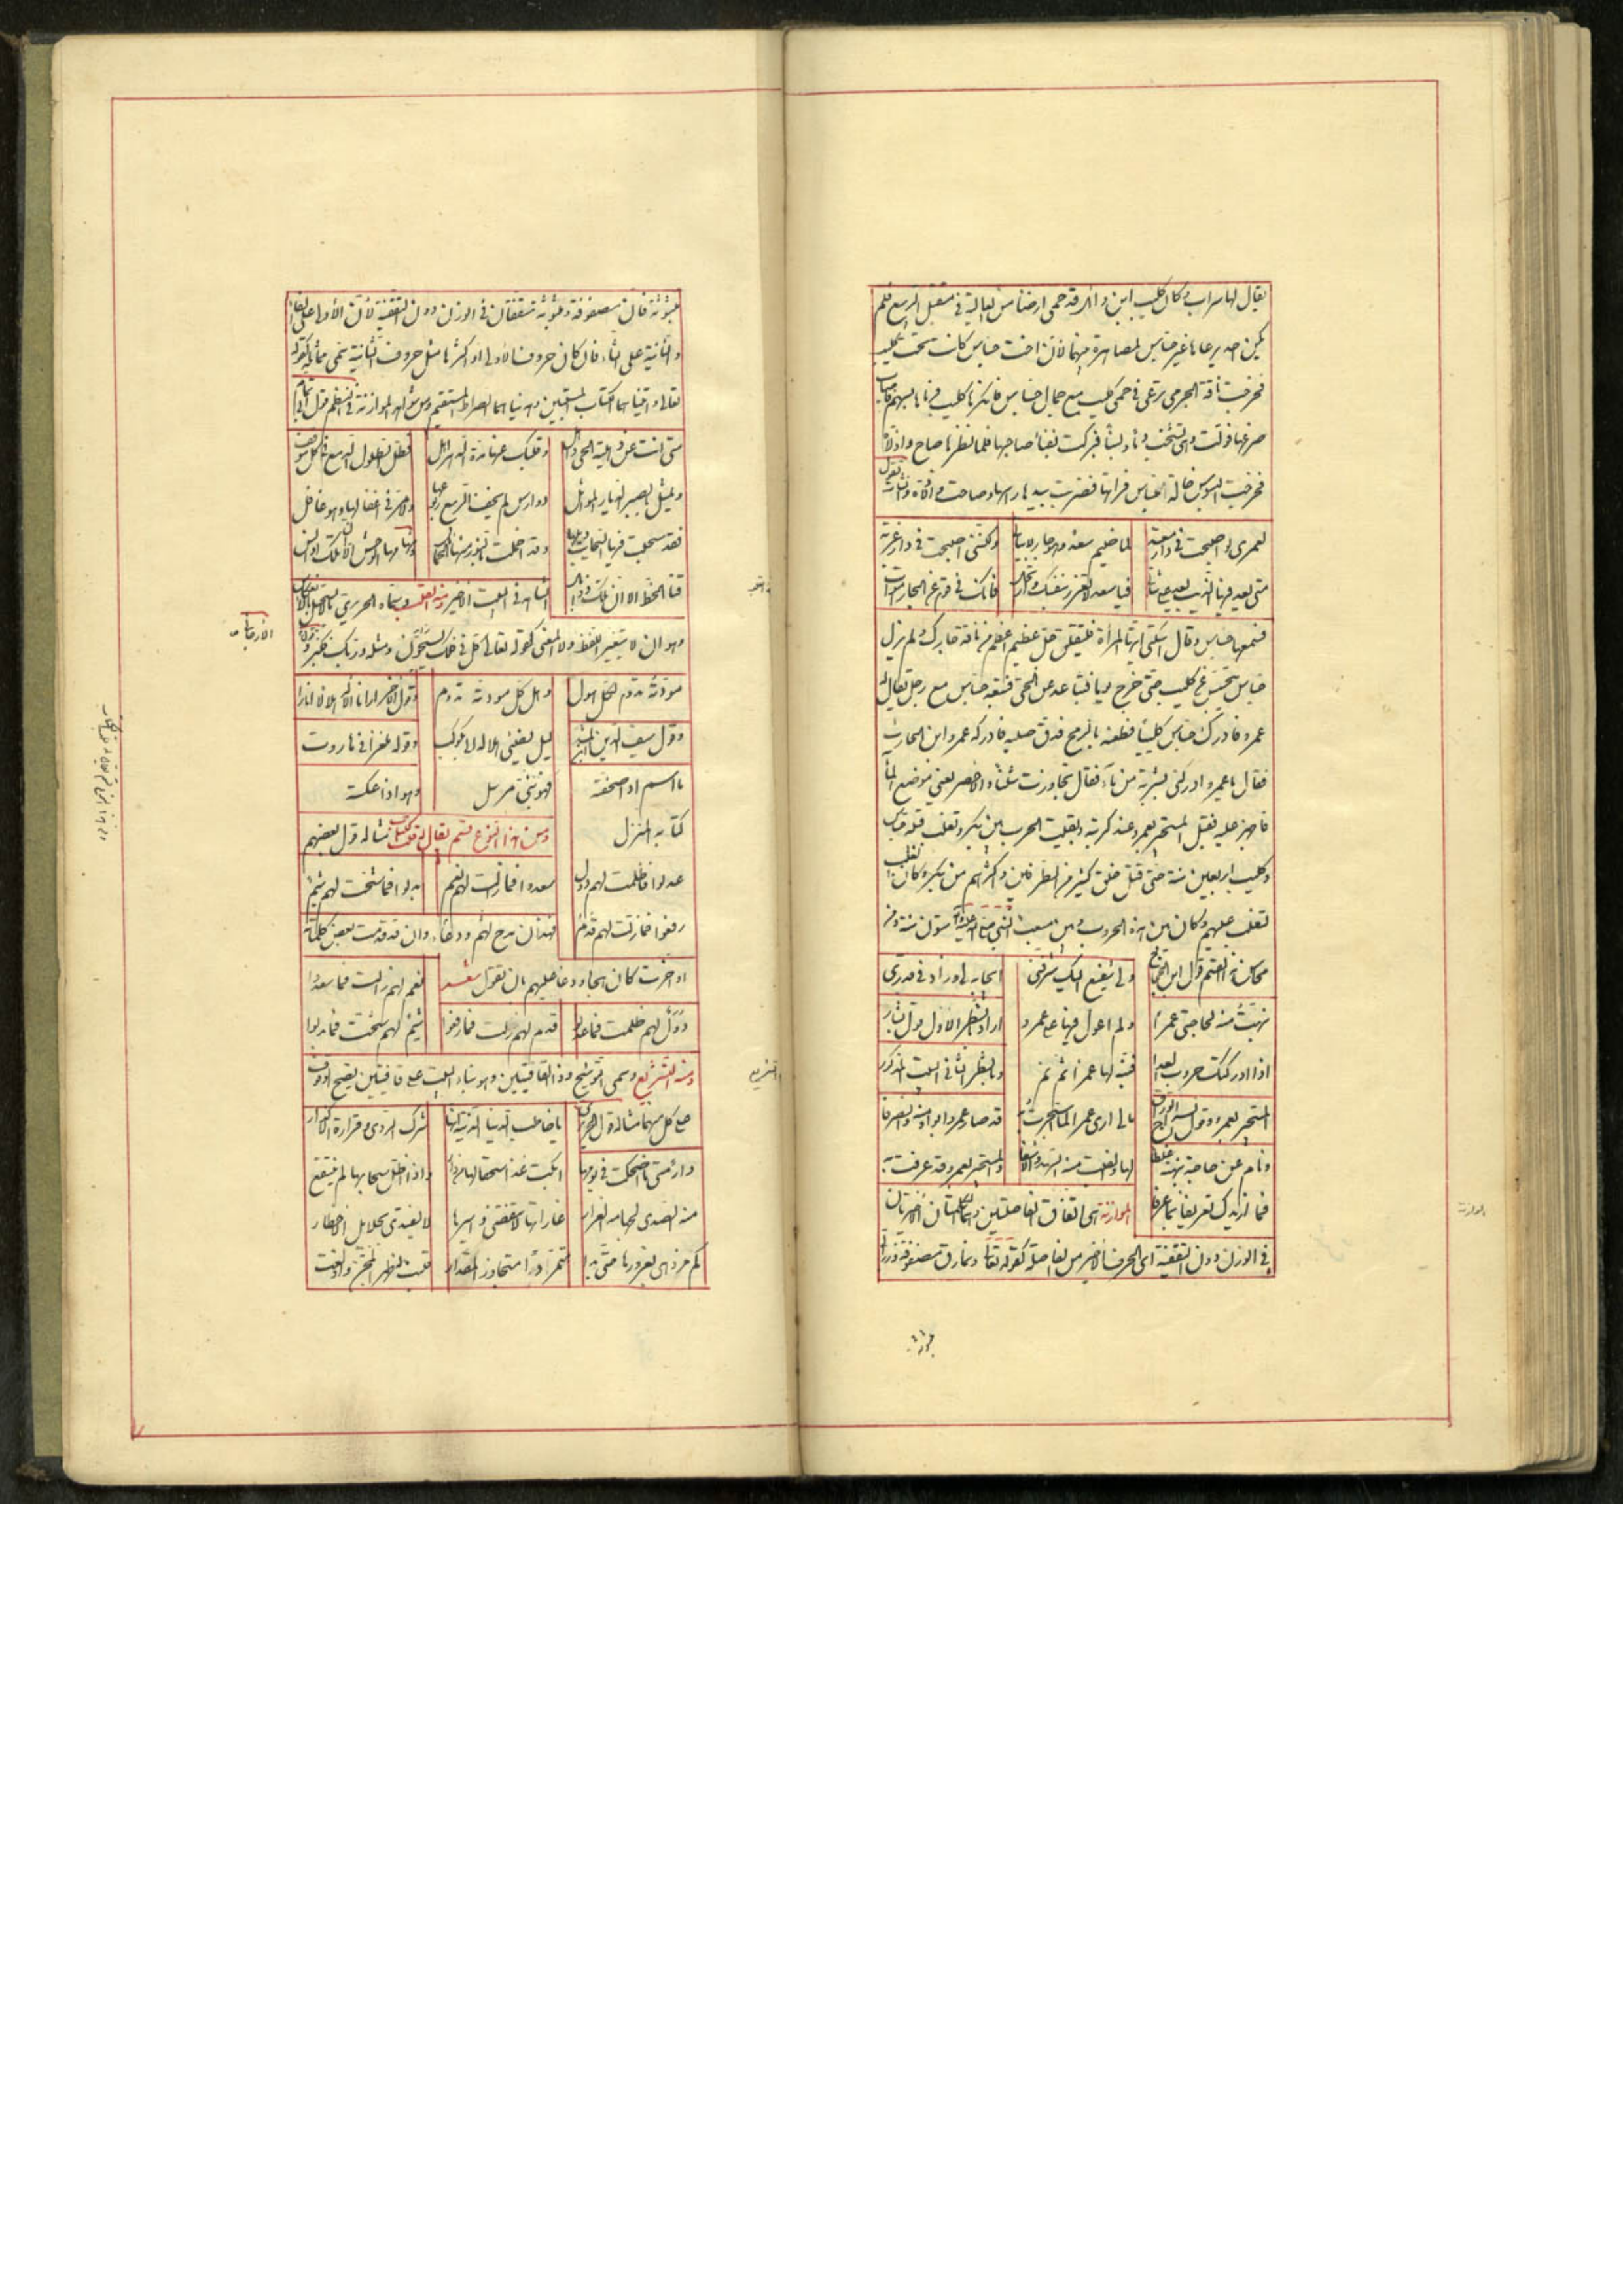 يقال لها سراب وكان كليب ابن وائل قد حمى ارضا من العالية في مستقبل الربيع فلم
يكن احد يرعاها غير جساس لمصاهرة بينهما لان اخت جساس كانت تحت كليب
فخرجت ناقة الجرمي ترعى في حمى كليب مع جمال جساس فانكرها كليب فرماها بسهم فاصاب
ضرعها فولت وهي تشخب دما ولبنا فبركت بفناء صاحبها فلما نظرها صاح واذلاه
فخرجت البسوس خالة جساس فراتها فضربت بيدها راسها وصاحت واذلاه وانشات تقول
لعمري لو اصبحت في دار منقذ لما ضيم سعد وهو جار لابياتي ولكنني اصبحت في دار غربة
متى يعد فيها الذيب يعد على شاتي فيا سعد لا تغرر بنفسك وارتحل فانك في قوم عن الجار اموات
فسمعها جساس وقال اسكتي ايتها المرأة فليقتلن جمل عظيم اعظم من ناقة جارك ولم يزل
جساس يتجسس عن كليب حتى خرج يوما فتباعد عن الحي فتبعه جساس مع رجل يقال له
عمرو فادرك جساس كليبا فطعنه بالرمح فدق صلبه فادركه عمرو ابن الحارث
فقال يا عمرو ادركني بشربة من ماء فقال تجاوزت شبيثا والاحص يعني موضع الماء
فاجهز عليه فقيل المستجير بعمرو عند كربته وبقيت الحرب بين بكر وتغلب قبيلة جساس
وكليب اربعين سنة حتى قتل خلق كثير من الطرفين واكثرهم من بكر وكان
تغلب عليهم وكان بين هذه الحروب وبين مبعث النبي صلى الله عليه وآله ستون سنة ومن
محاسن هذا القسم قول ابن الحجاج ولي شفيع اليك شرفني ايجابه لي وزاد في قدري
نبهت منه لحاجتي عمرا ولم اعول فيها على عمرو اراد بالشطر الاول قول بشار
اذا ادركتك حروب العدا فنبه لها عمرا ثم نم وبالشطر الثاني البيت المذكور
المستجير بعمرو وقول السراج الوراق مالي ارى عمرا لما استجرت به قد صار عمروا بواو فيه وانصرفا
ونام عن حاجة نبهت غلطا لها والفيت منه السهد والاسفا والمستجير بعمرو قد عرفت به
فما ازيدك تعريفا بما عرفا الموازنة هي اتفاق الفاصلتين وهما الكلمتان الاخيرتان
في الوزن دون التقفية اي الحرف الاخير من الفاصلة كقوله تعالى ونمارق مصفوفة وزرابي
مبثوثة
الموازنة
مبثوثة فان مصفوفة ومبثوثة متفقتان في الوزن دون التقفية لان الاولى على الفاء
والثانية على الثاء فان كان حروف الاولى او اكثرها مثل حروف الثانية سمي مماثلة كقوله
تعالى واتيناهما الكتاب المستبين وهديناهما الصراط المستقيم ومن شواهد الموازنة في النظم قول ابي تمام
متى انت عن ذهلية الحي ذاهل وقلبك عنها مدة الدهر اهل تطل الطلول الدمع في كل موقف
وتمثل بالصبر الديار المواثل دوارس لم يجف الربيع ربوعها ولا مر في اغفالها وهو غافل
فقد سحبت فيها السحاب ذيولها وقد اخملت بالنور منها الخمائل مها الوحش الا ان هاتا اوانس
قنا الخط الا ان تلك ذوابل الشاهد في البيت الاخير ومنه القلب وسماه الحريري
وهو ان لا يتغير اللفظ ولا المعنى كقوله تعالى كل في فلك يسبحون ومثله وربك فكبر وقول
مودته تدوم لكل هول وهل كل مودته تدوم وقول الاخر ارانا الاله هلالا انارا
وقول سيف الدين ليل يضيء هلاله كوكب وقوله ملغزا في
ما اسم اذا صحفته فهو نبي مرسل وهو اذا عكسته
كتابه المنزل ومن هذا النوع قسم يقال له مثاله قول بعضهم
عدلوا فما ظلمت لهم دول سعدوا فما زالت لهم نعم بذلوا فما شحت لهم شيم
رفعوا فما زلت لهم قدم فهذان مدح لهم ودعاء وان قدمت بعض كلماته
او اخرت كان هجاء ودعا عليهم بان تقول نعم لهم زالت فما سعدوا
دول لهم ظلمت فما عدلوا قدم لهم زلت فما رفعوا شيم لهم شحت فما بذلوا
ومنه التشريع ويسمى التوشيح وذو القافيتين وهو بناء البيت على قافيتين يصح الوقوف
على كل منهما مثاله قول الحريري يا خاطب الدنيا الدنية انها شرك الردى وقرارة الاكدار
دار متى ما اضحكت في يومها ابكت غدا واذا اظل سحابها لم ينتقع
منه الصدى لجهامه الغرار غاراتها لا تنقضي واسيرها لا يفتدى بجلايل الاخطار
كم مزدهى بغرورها حتى بدا متمردا متجاوز المقدار قلبت له ظهر المجن واولغت
التشريع